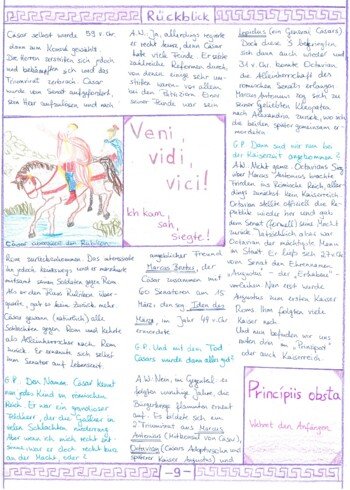 Rückblick
Cäsar selbst wurde 59 v. Chr.
dann zum Konsul gewählt.
Die Herren zerstritten sich jedoch
und bekämpften sich und das
Triumvirat zerbrach. Cäsar
wurde vom Senat aufgefordert
sein Heer aufzulösen und nach
Cäsar überquert den Rubikon
Rom zurückzukommen. Das interessierte
ihn jedoch keineswegs und er marschierte
mitsamt seinen Soldaten gegen Rom.
Als er den Fluss Rubikon über-
querte, gab es keine zurück mehr.
Cäsar gewann (natürlich) alle
Schlachten gegen Rom und kehrte
als Alleinherrscher nach Rom
zurück. Er ernannte sich selbst
zum Senator auf Lebenszeit
G.P. Den Namen Cäsar kennt
nun jedes Kind im römischen
Reich. Er war ein grandioser
Feldherr, der die Gallier in
vielen Schlachten niederrang.
Aber wenn ich mich recht ent-
sinne, war er doch recht kurz
an der Macht, oder?
A.W. Ja, allerdings regierte
er recht leise, denn Cäsar
hatte viele Feinde. Er setzte
zahlreiche Reformen durch,
von denen einige sehr um-
stritten waren, vor allem
bei den Patriziern. Einer
seiner Feinde war sein
Veni,
vidi,
vici!
Ich kam,
sah,
siegte!
angeblicher Freund
Marcus Brutus, der
Cäsar zusammen mit
60 Senatoren am 15.
März, den sog. Iden des
März, im Jahr 44 v. Chr
ermordete
G.P. Und mit dem Tod
Cäsars wurde dann alles gut?
A.W. Nein, im Gegenteil: es
folgten unruhige Jahre, die
Bürgerkriege flammten erneut
auf. Es bildete sich ein
2. Triumvirat aus Marcus
Antonius (Mitkonsul von Cäsar),
Octavian (Cäsars Adoptivsohn und
späterer Kaiser Augustus) und
Lepidus (ein General Cäsars)
Doch diese 3 bekriegten
sich dann auch wieder und
31 v. Chr. konnte Octavian
die Alleinherrschaft des
römischen Senats erlangen.
Marcus Antonius zog sich zu
seiner Geliebten Kleopatra
nach Alexandria zurück, wo sich
die beiden später gemeinsam er-
mordeten.
G.P. Dann sind wir nun bei
der Kaiserzeit angekommen?
A.W. Nicht ganz. Octavians Sieg
über Marcus Antonius brachte
Frieden ins Römische Reich, aller-
dings zunächst kein Kaiserreich.
Octavian stellte offiziell die Re-
publik wieder her und gab
dem Senat (formell) seine Macht
zurück. Tatsächlich aber war
Octavian der mächtigste Mann
im Staat. Er ließ sich 27 v. Chr
vom Senat den Ehrennamen
„Augustus" - der „Erhabene"
verleihen. Nun erst wurde
Augustus zum ersten Kaiser
Roms. Ihm folgten viele
Kaiser nach.
Und nun befinden wir uns
mitten drin im „Prinzipat"
oder auch Kaiserreich.
Principiis obsta
Wehret den Anfängen.
-9-